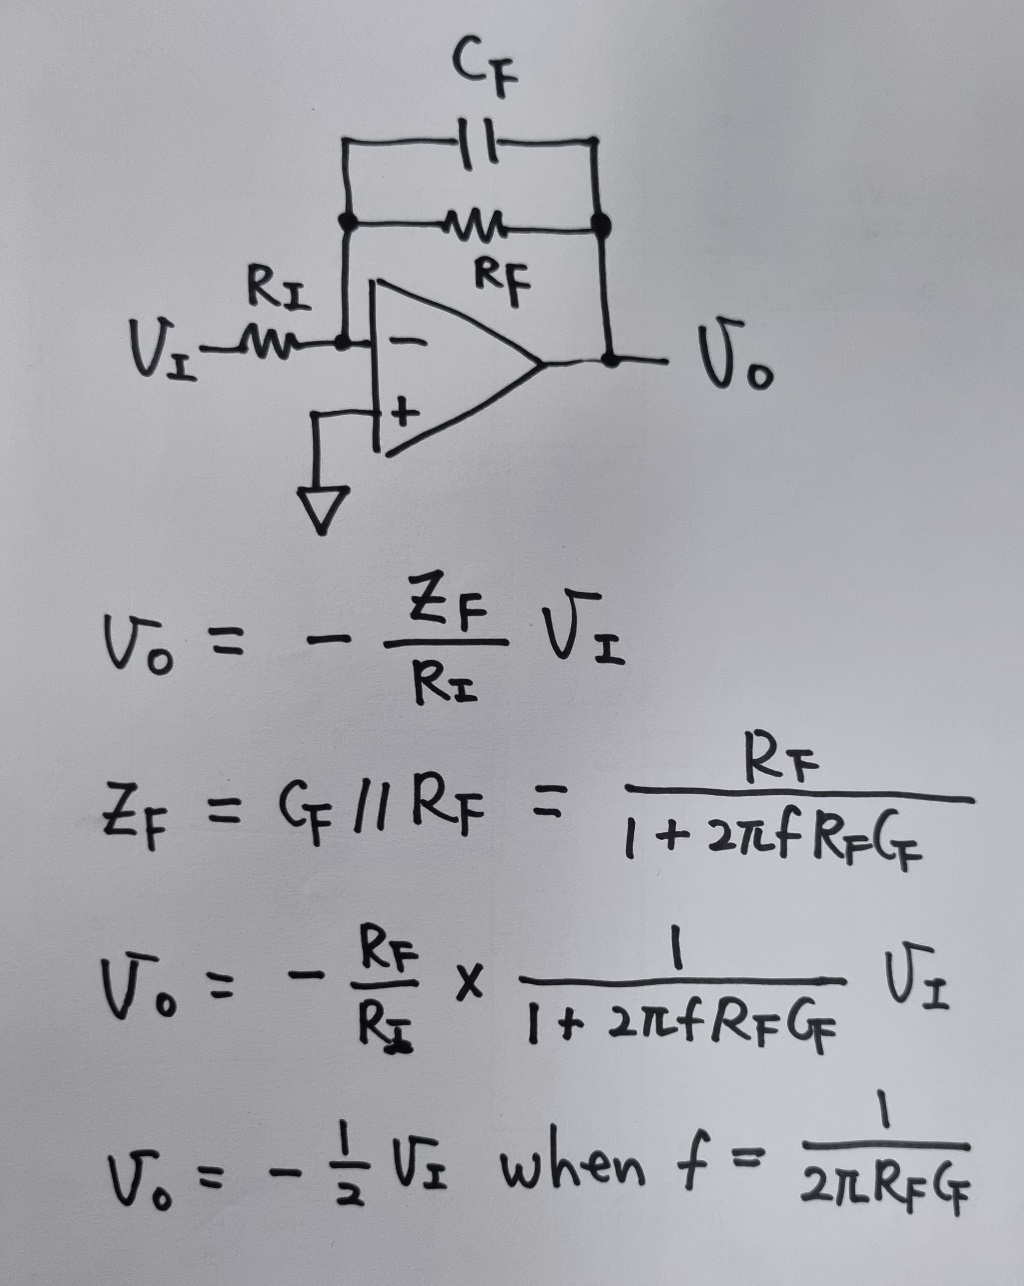 C_F
R_F
R_I
V_I
−
V_o
+
V_o = - Z_F / R_I V_I
Z_F = C_F // R_F = R_F / (1 + 2πf R_F C_F)
V_o = - R_F / R_I × 1 / (1 + 2πf R_F C_F) V_I
V_o = - 1/2 V_I when f = 1 / (2π R_F C_F)